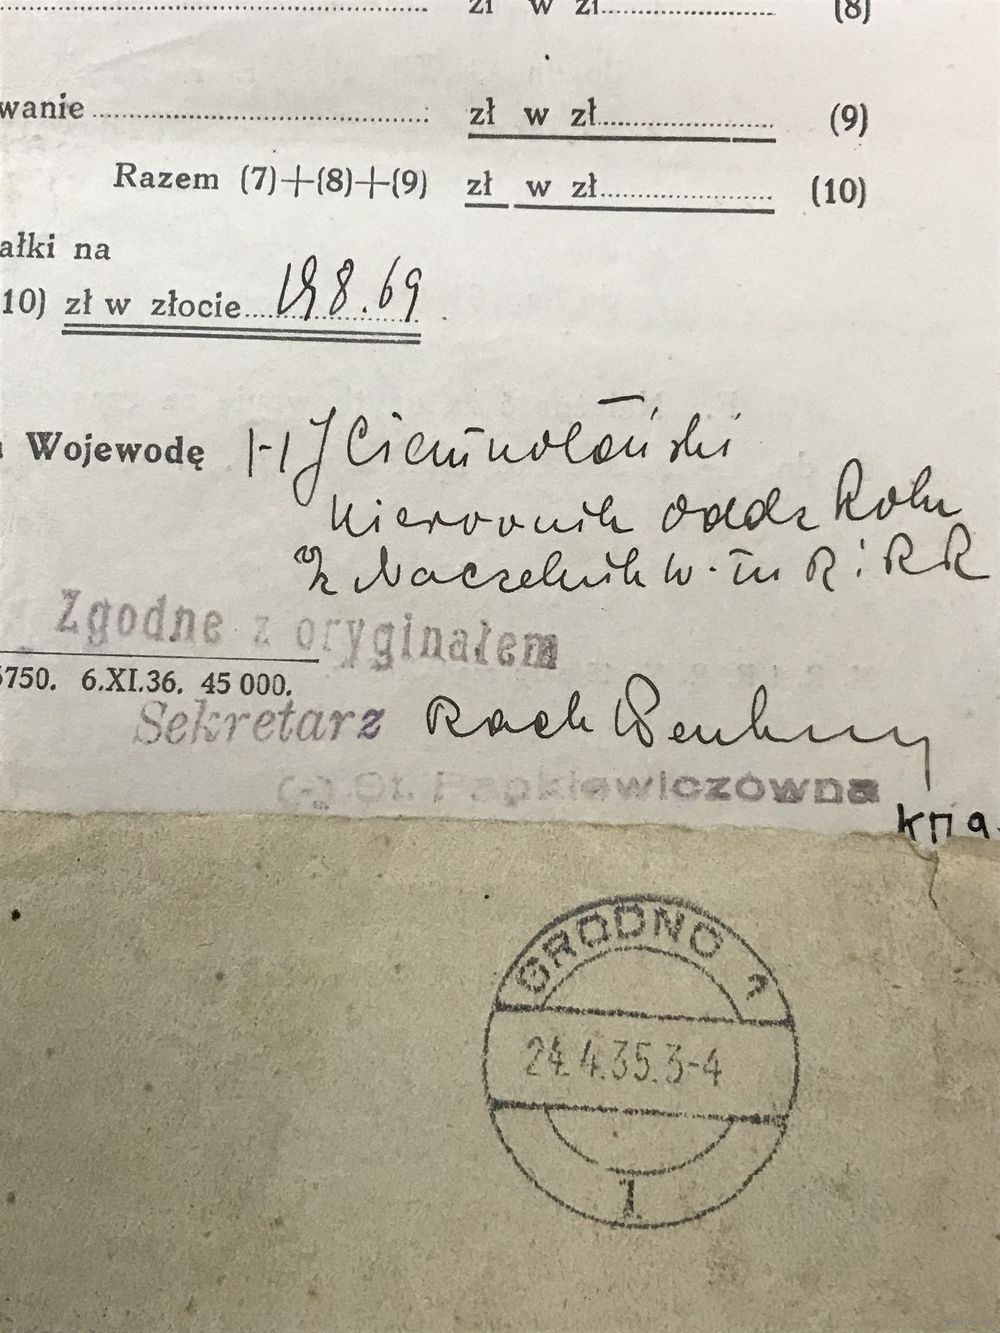 zł w zł (8)
wanie zł w zł (9)
Razem (7)+(8)+(9) zł w zł (10)
ałki na
10) zł w złocie 198.69
Wojewodę (-) J
Kierownik Oddz Rolн
z Naczelnik W. R i R R
Zgodne z oryginałem
5750. 6.XI.36. 45 000.
Sekretarz
(-) St. Papkiewiczówna
GRODNO 1
24.4.35.3-4
1